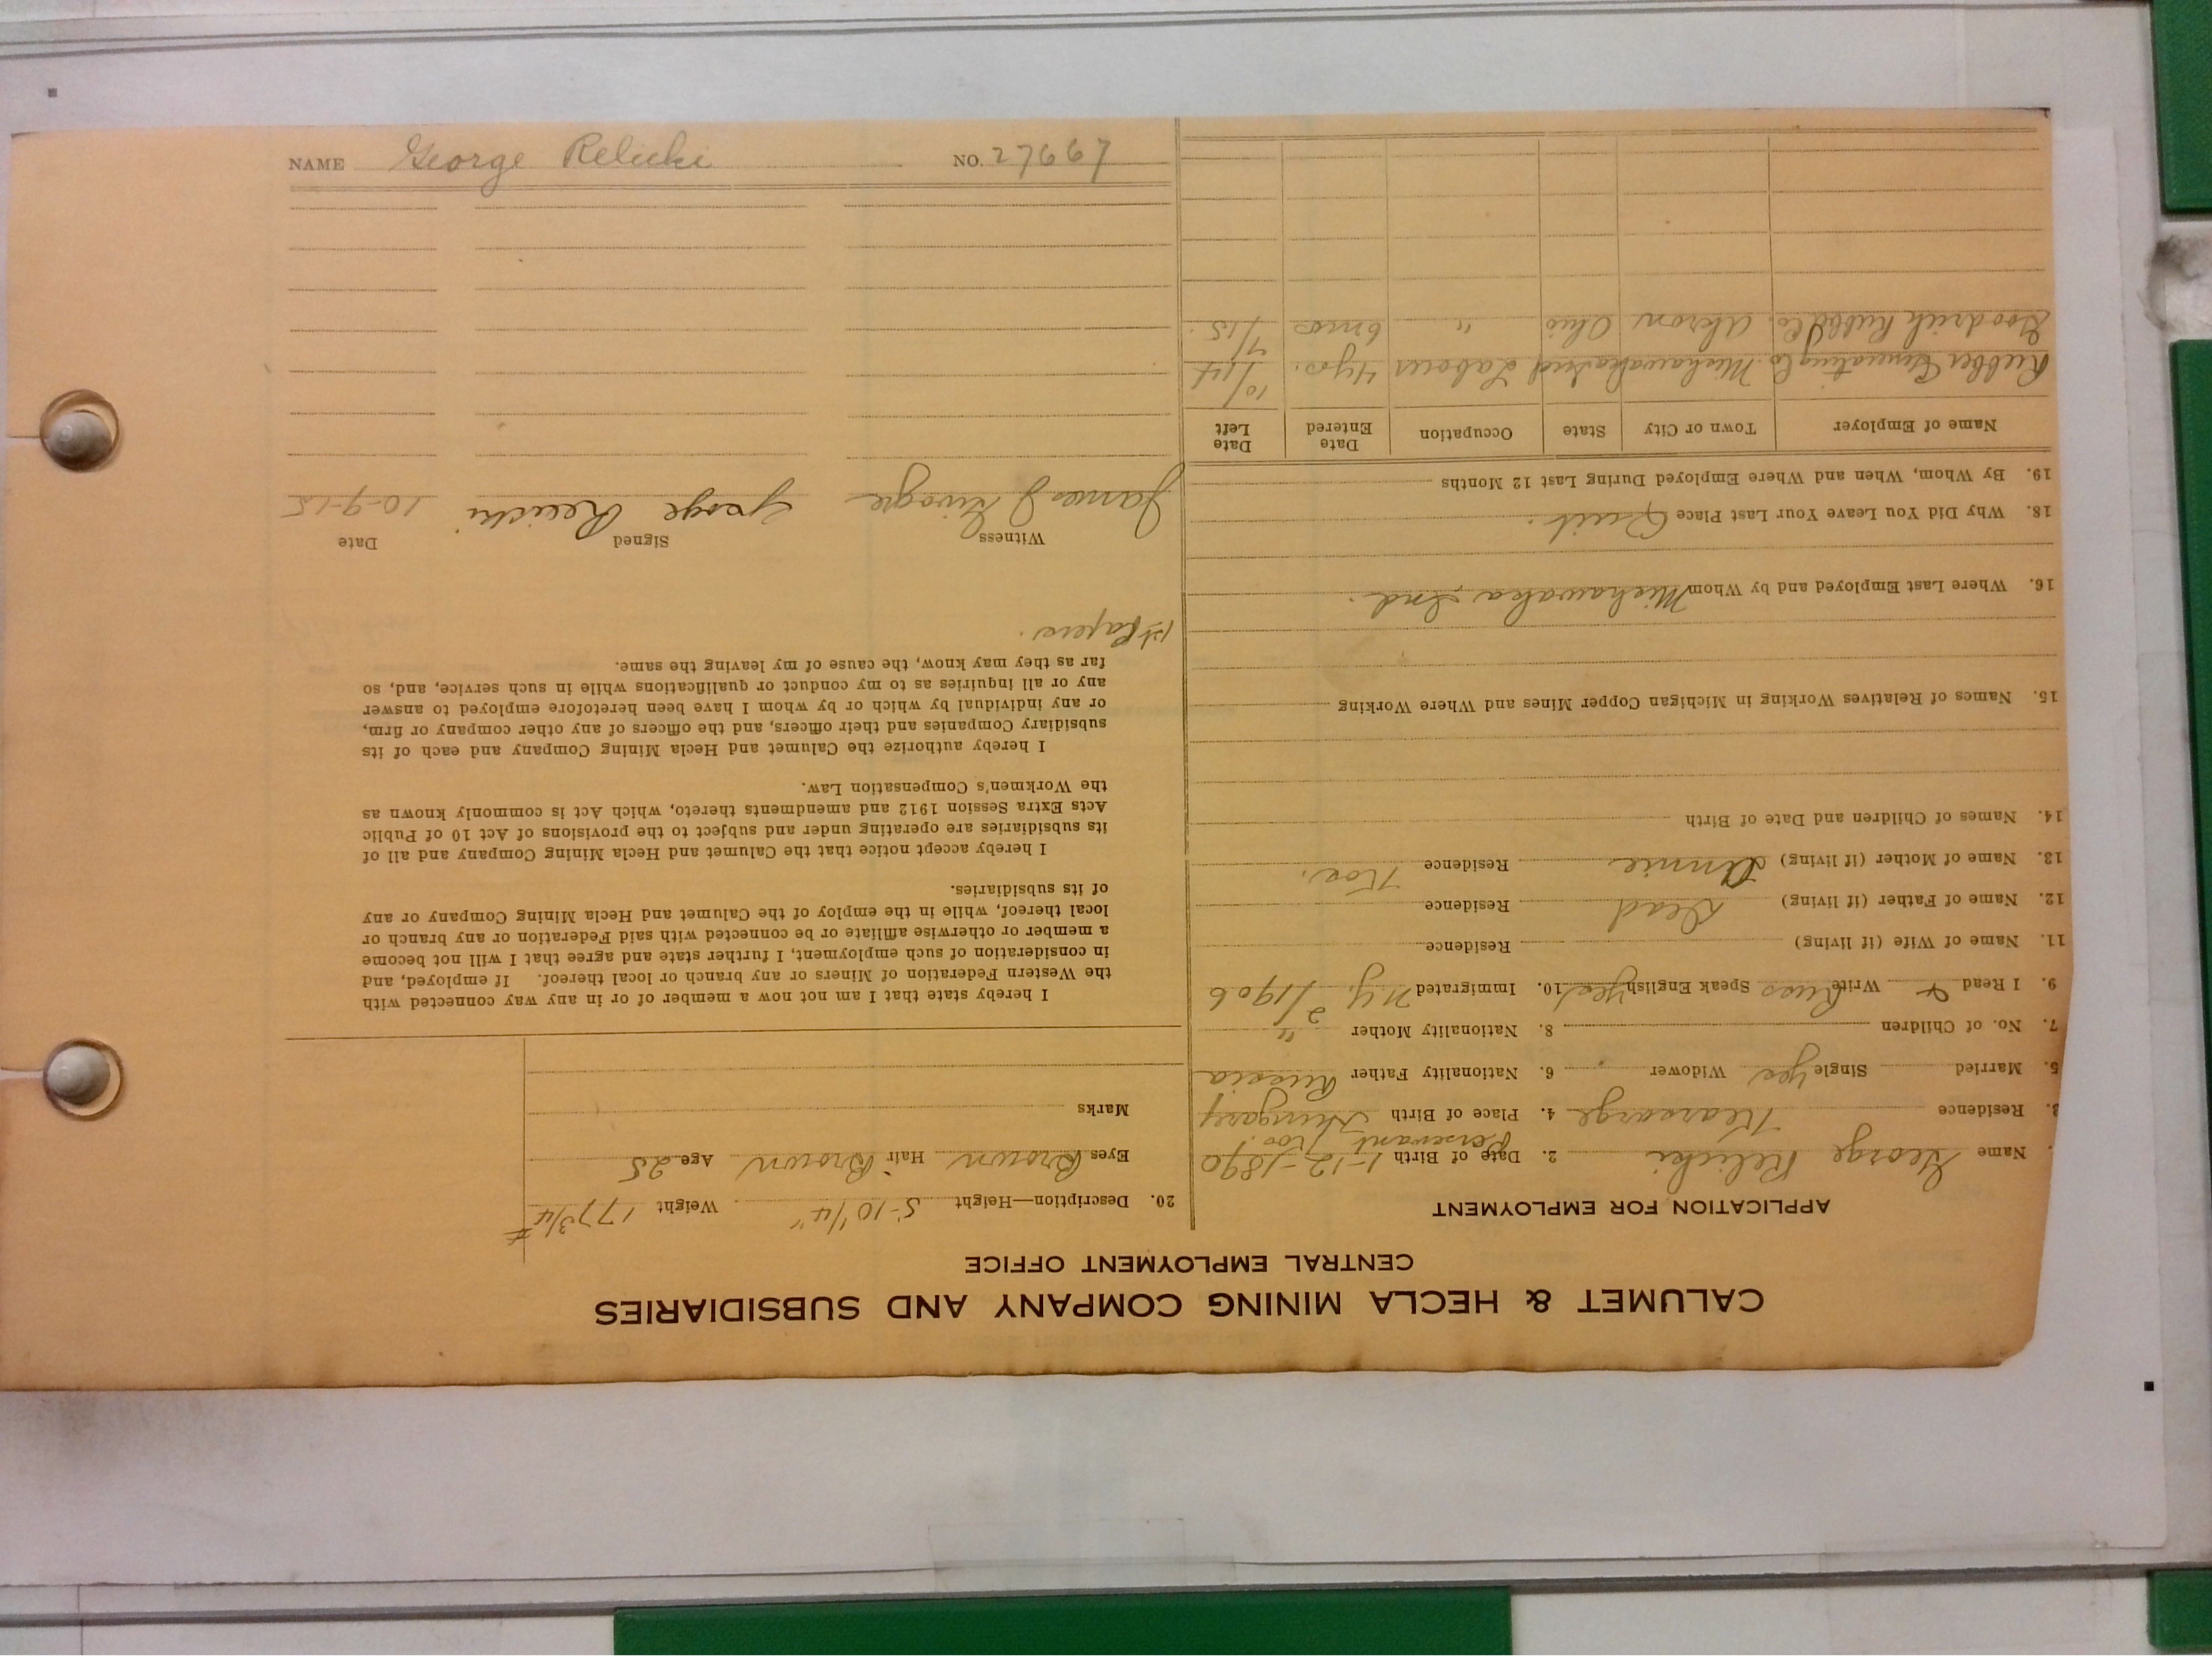 CALUMET & HECLA MINING COMPANY AND SUBSIDIARIES
CENTRAL EMPLOYMENT OFFICE
APPLICATION FOR EMPLOYMENT
. Name George Relicki 2. Date of Birth 1-12-1890
3. Residence Kearsarge 4. Place of Birth Hungary
5. Married Single Yes Widower 6. Nationality Father Russia
7. No. of Children 8. Nationality Mother "
9. I Read & Write Russ Speak English Yes 10. Immigrated N.Y. 2/1906
11. Name of Wife (if living) Residence
12. Name of Father (if living) Dead Residence
13. Name of Mother (if living) Annie Residence
14. Names of Children and Date of Birth
15. Names of Relatives Working in Michigan Copper Mines and Where Working
16. Where Last Employed and by Whom Mishawaka, Ind.
18. Why Did You Leave Your Last Place Quit.
19. By Whom, When and Where Employed During Last 12 Months
Name of Employer Town or City State Occupation Date Entered Date Left
Rubber Co. Mishawaka Ind Laborer 4 yrs. 10/14
Goodrich Rubber Co. Akron Ohio " 6 mos 7/15.
20. Description—Height 5-10 1/4" Weight 177 3/4 #
Eyes Brown Hair Brown Age 25
Marks
I hereby state that I am not now a member of or in any way connected with
the Western Federation of Miners or any branch or local thereof. If employed, and
in consideration of such employment, I further state and agree that I will not become
a member or otherwise affiliate or be connected with said Federation or any branch or
local thereof, while in the employ of the Calumet and Hecla Mining Company or any
of its subsidiaries.
I hereby accept notice that the Calumet and Hecla Mining Company and all of
its subsidiaries are operating under and subject to the provisions of Act 10 of Public
Acts Extra Session 1912 and amendments thereto, which Act is commonly known as
the Workmen's Compensation Law.
I hereby authorize the Calumet and Hecla Mining Company and each of its
subsidiary Companies and their officers, and the officers of any other company or firm,
or any individual by which or by whom I have been heretofore employed to answer
any or all inquiries as to my conduct or qualifications while in such service, and, so
far as they may know, the cause of my leaving the same.
1st Papers.
Witness Signed Date
James J. George Relicki 10-9-15
NAME George Relicki NO. 27667